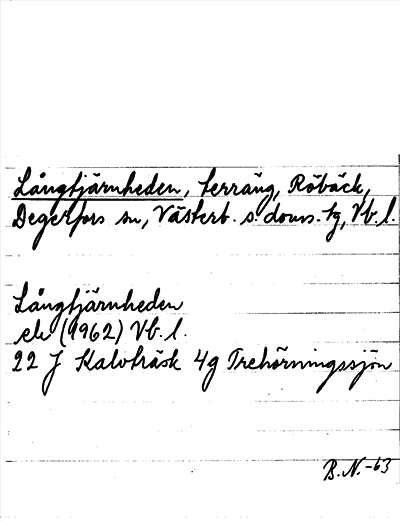 Långtjärnheden, terräng, Röbäck,
Degerfors sn, Västerb. s. doms. tg, Vb. l.
Långtjärnheden
ek (1962) Vb. l.
22 J Kalvträsk 4g Trehörningssjön
B.N.-63